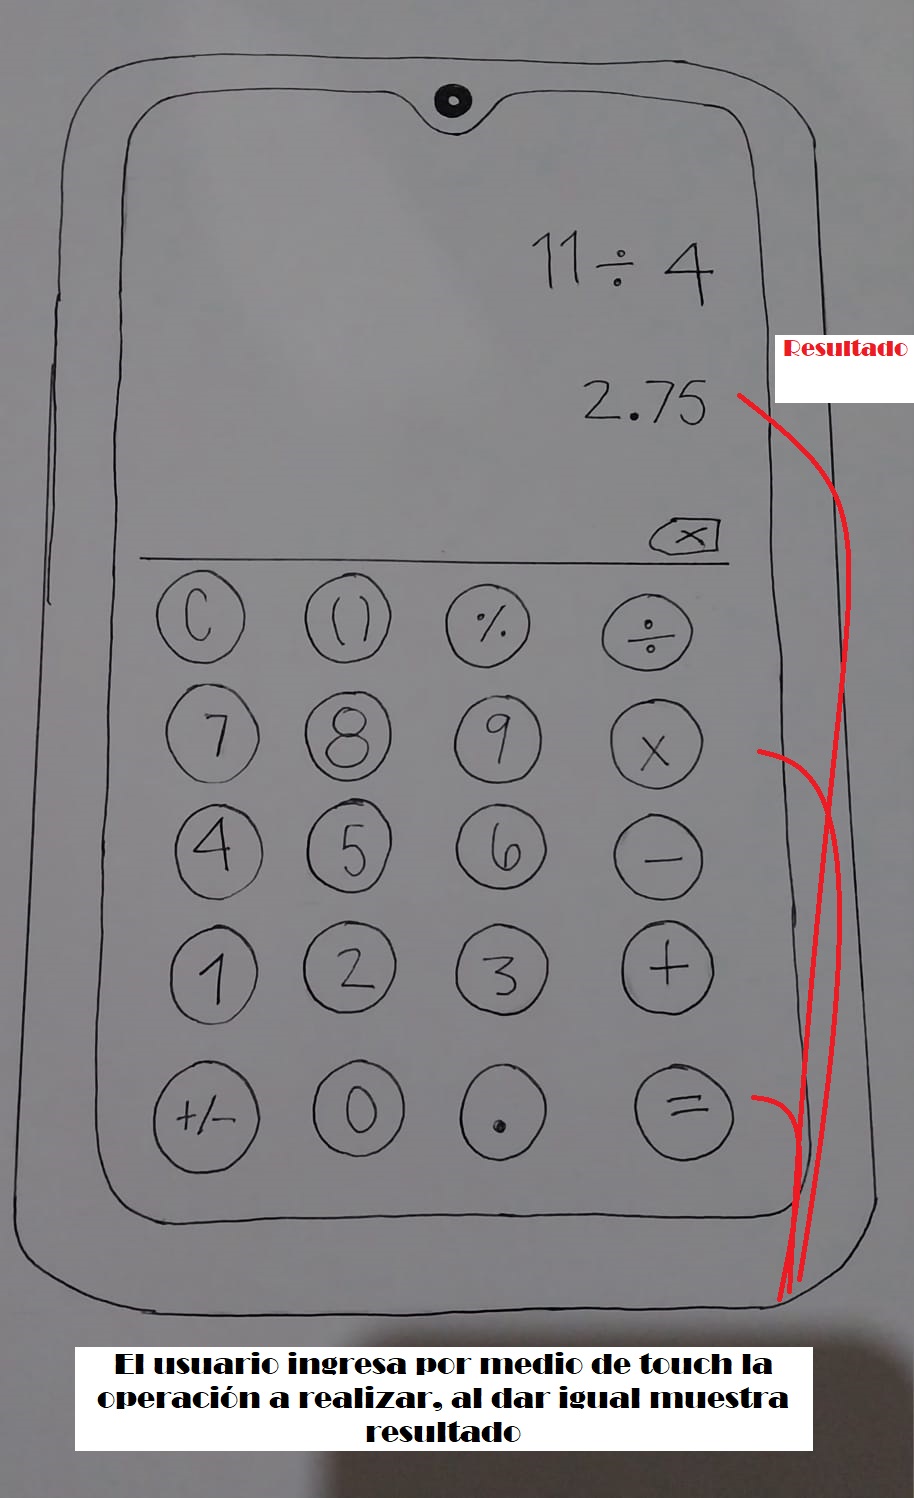 11 ÷ 4
Resultado
2.75
x
C () % ÷
7 8 9 x
4 5 6 -
1 2 3 +
+/- 0 . =
El usuario ingresa por medio de touch la
operación a realizar, al dar igual muestra
resultado